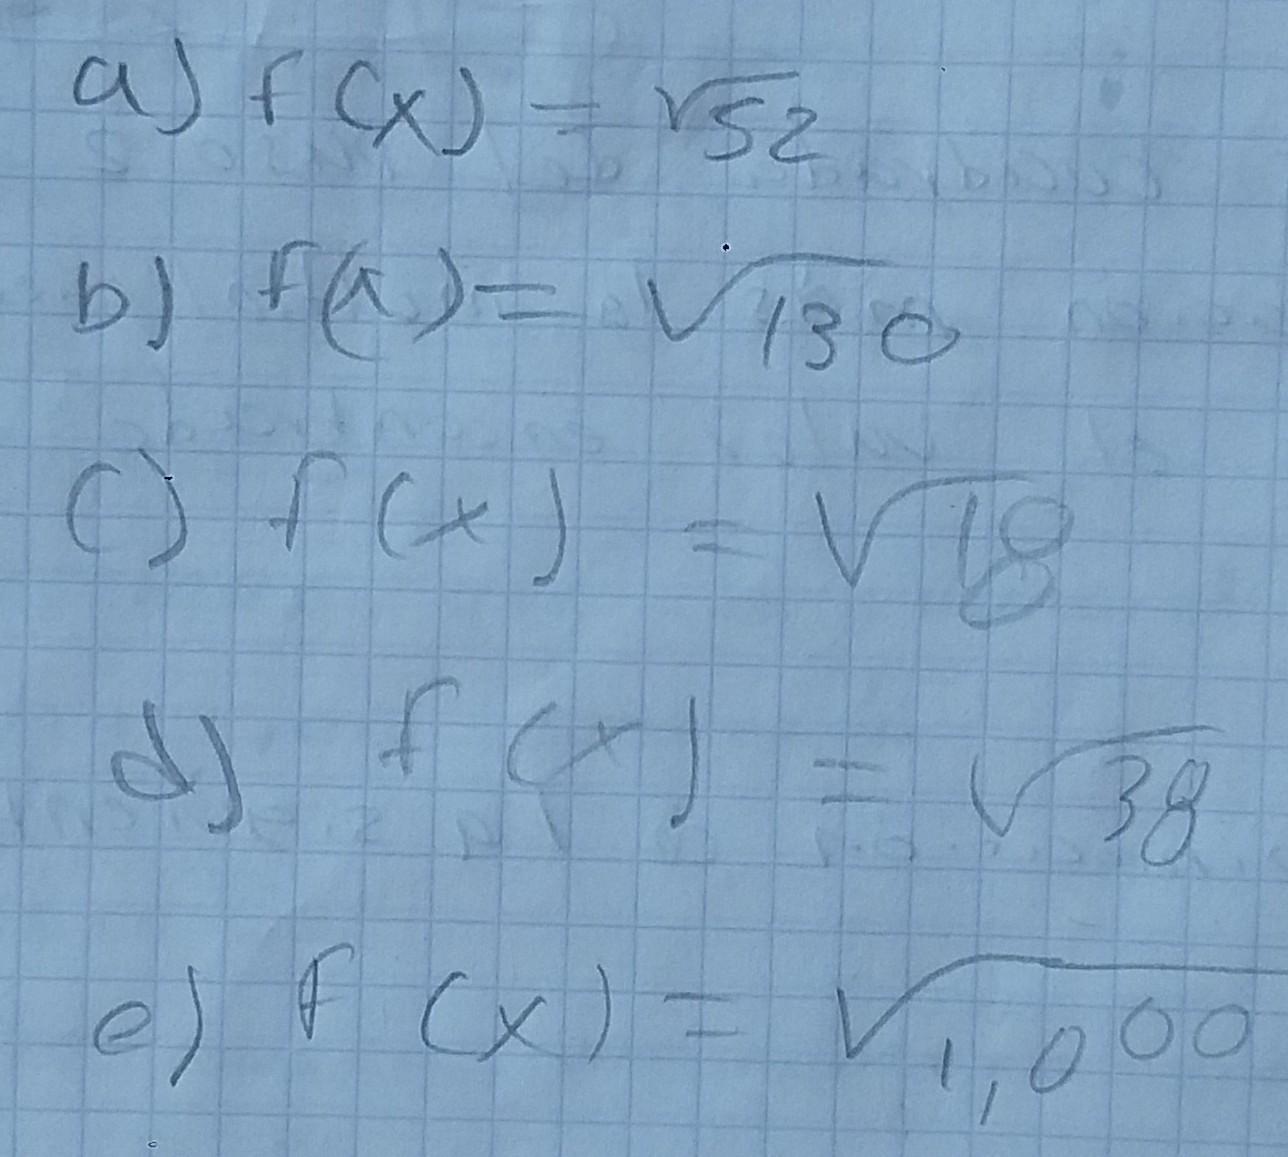 a) f(x) = √52
b) f(x) = √130
c) f(x) = √18
d) f(x) = √38
e) f(x) = √1,000